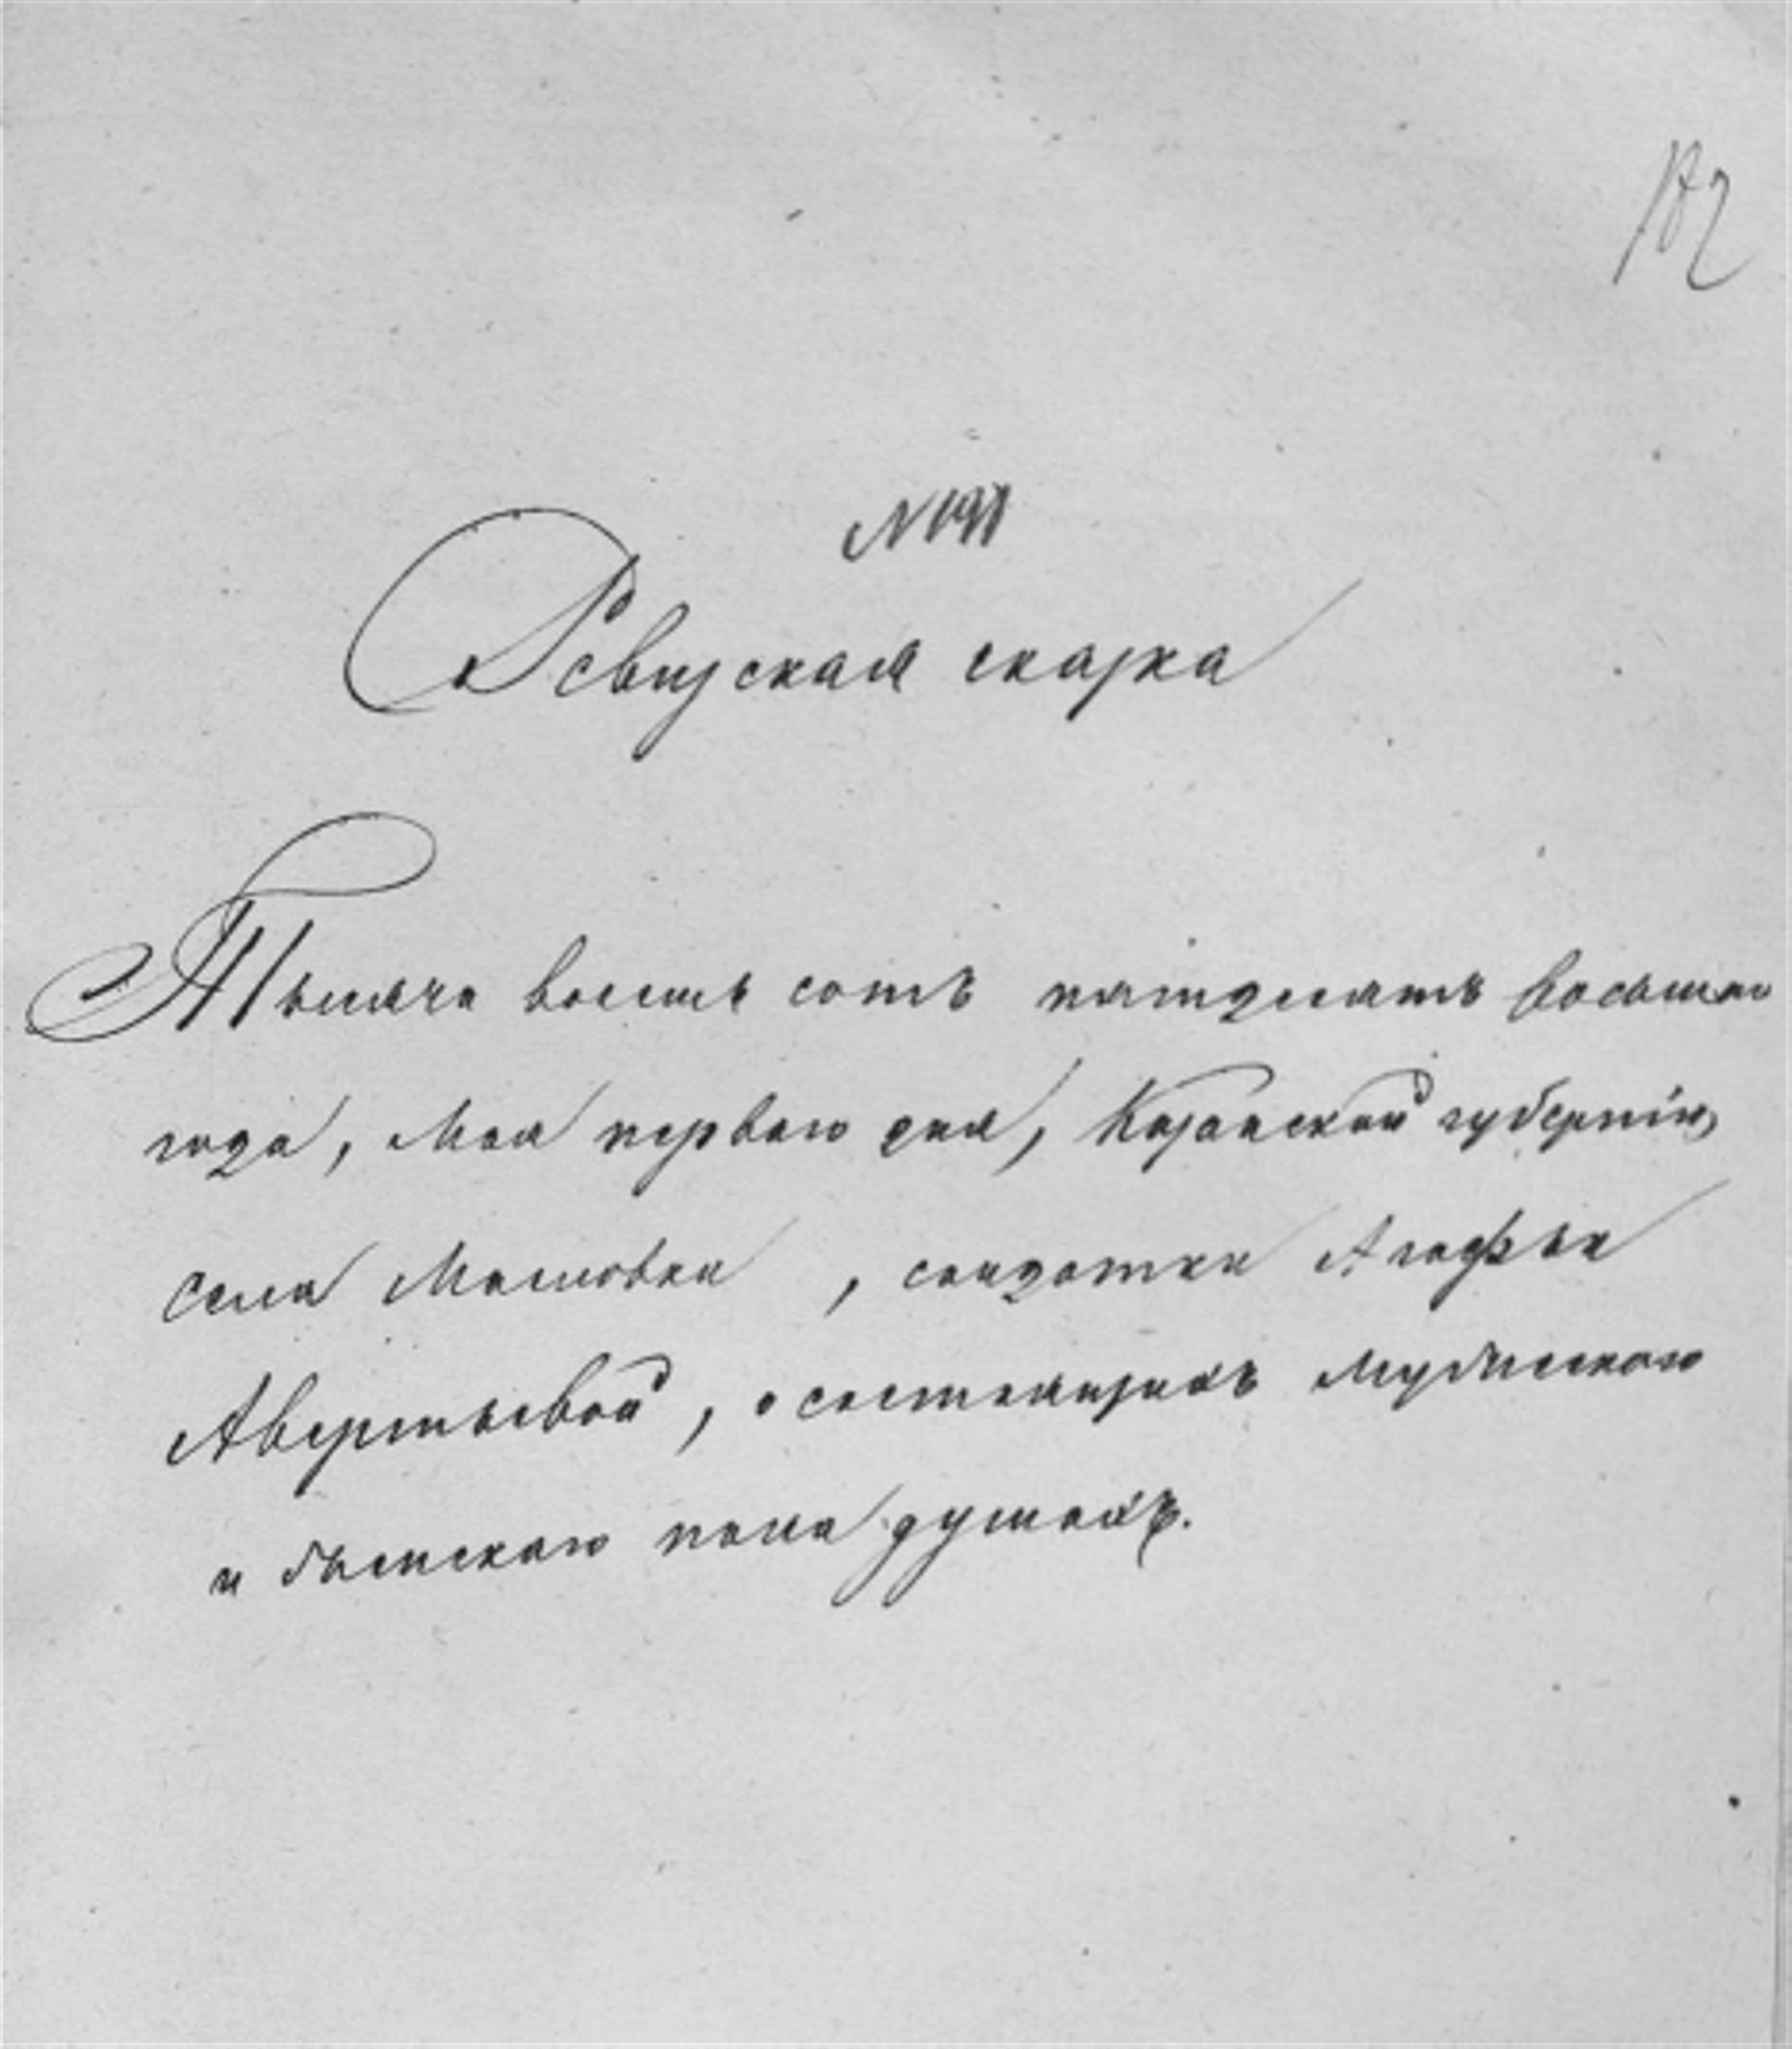 Ревизская сказка
Тысяча восемь сотъ пятдесятъ восьмаго
года, Мая перваго дня, Казанской губерніи,
села Масловки, солдатки Агафьи
Аверьевой, о состоящихъ мужескаго
и женскаго пола душахъ.